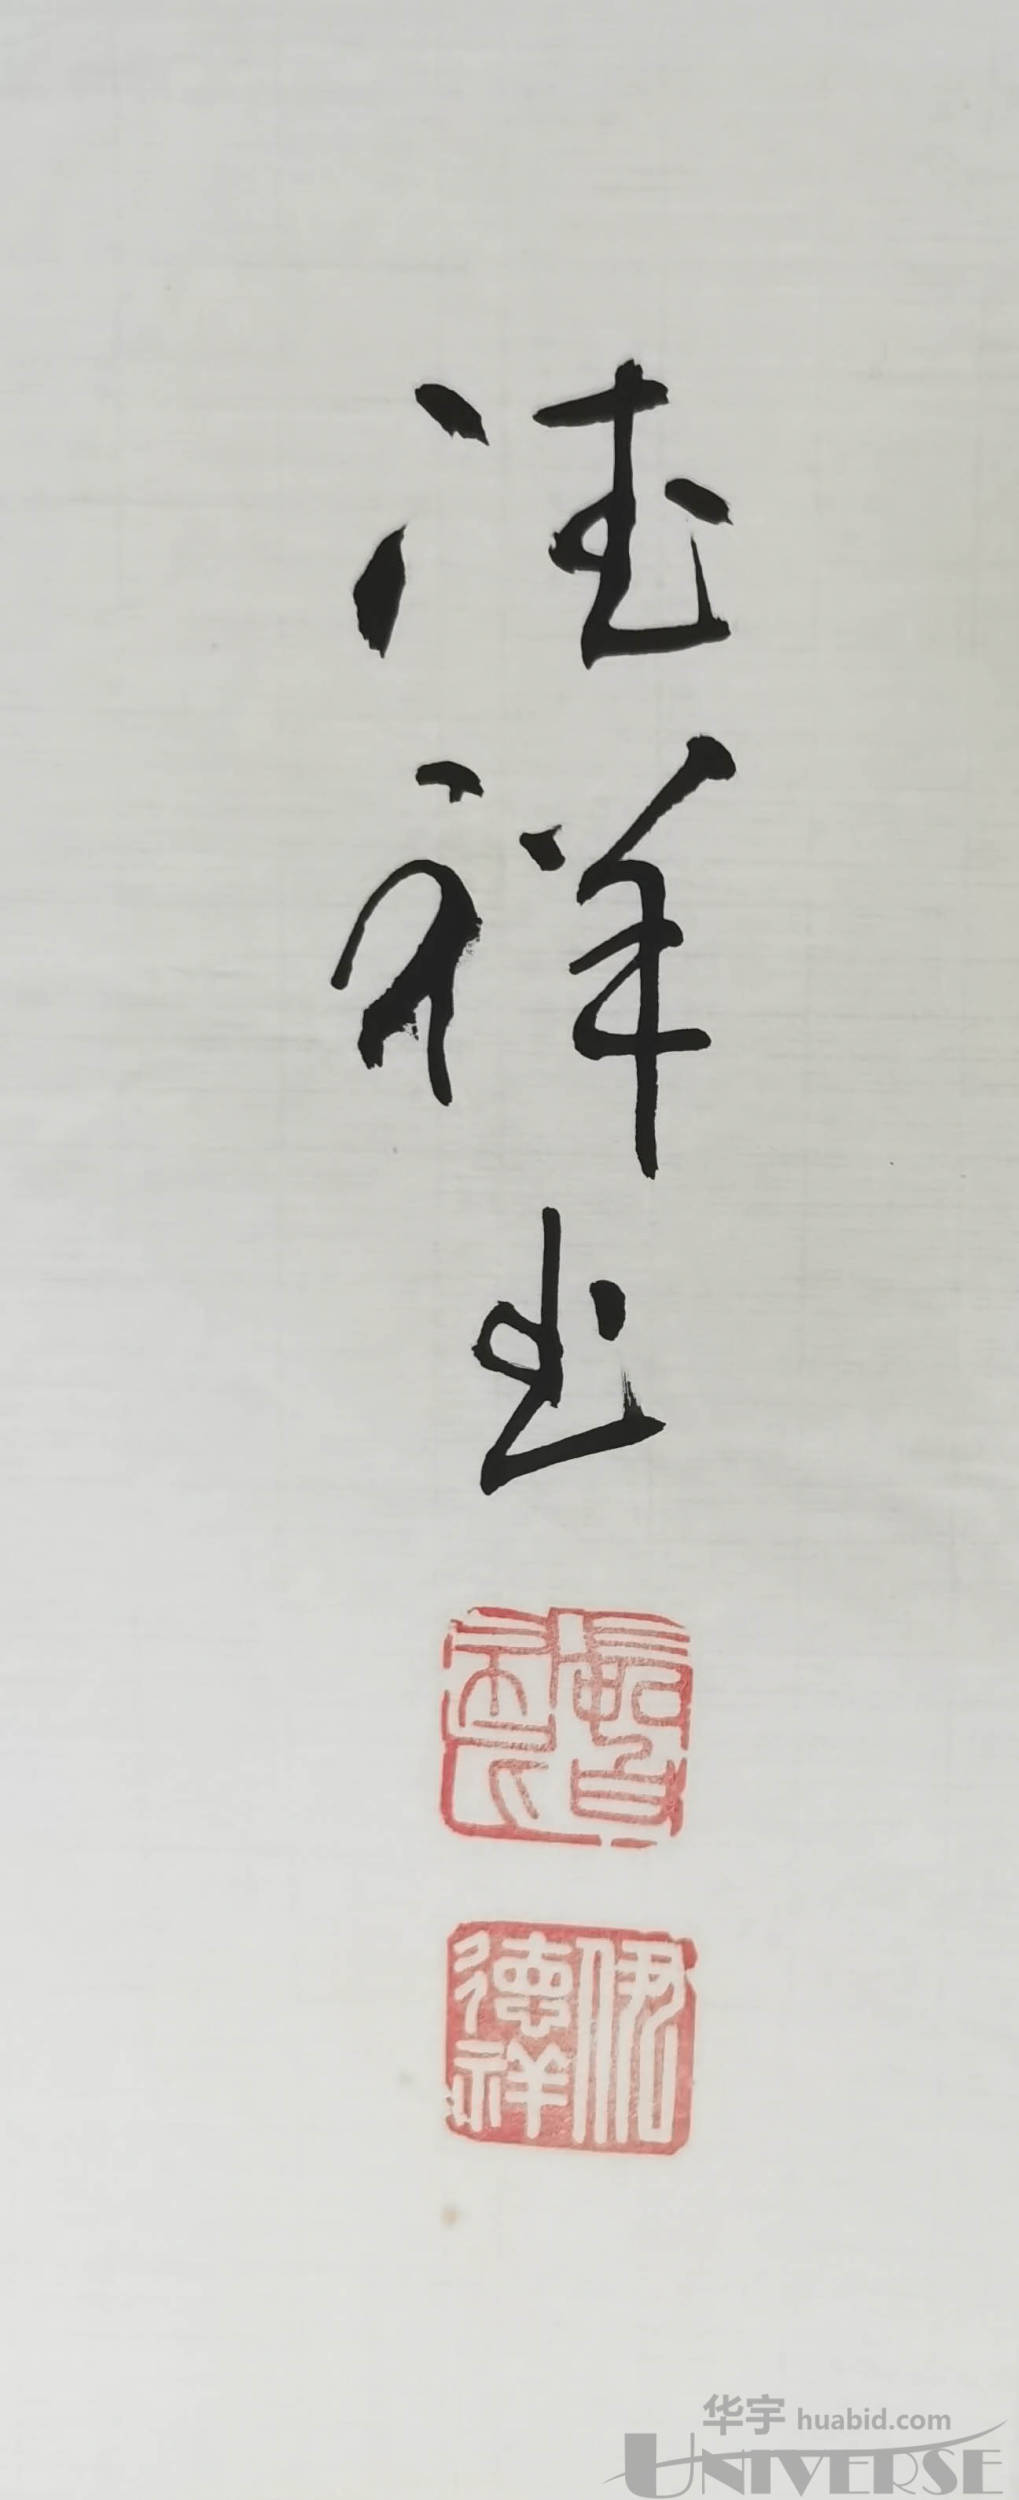 德祥书
伊德祥
华宇 huabid.com
UNIVERSE